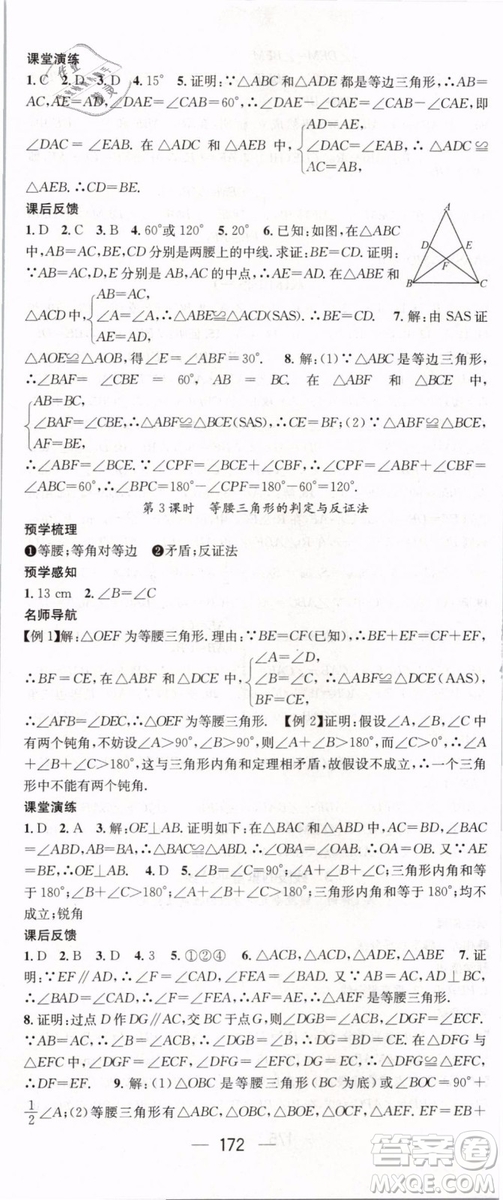 课堂演练
1. C 2. D 3. D 4. 15° 5. 证明:∵△ABC和△ADE都是等边三角形,∴AB=
AC,AE=AD,∠DAE=∠CAB=60°,∴∠DAE-∠CAE=∠CAB-∠CAE,即
∠DAC=∠EAB. 在△ADC和△AEB中, { AC=AB, ∠DAC=∠EAB, AD=AE, ∴△ADC≌
△AEB. ∴CD=BE.
课后反馈
1. D 2. C 3. B 4. 60°或120° 5. 20° 6. 已知:如图,在△ABC
中,AB=AC,BE,CD分别是两腰上的中线. 求证:BE=CD. 证明:
∵AB=AC,BE,CD分别是两腰上的中线,∴AE=AD. 在△ABE和
△ACD中, { AB=AC, ∠A=∠A, AE=AD, ∴△ABE≌△ACD(SAS). ∴BE=CD. 7. 解:由SAS证
△AOE≌△AOB,得∠E=∠ABF=30°. 8. 解:(1)∵△ABC是等边三角形,
∴∠BAF=∠CBE=60°,AB=BC. 在△ABF和△BCE中,
{ AB=BC, ∠BAF=∠CBE, AF=BE, ∴△ABF≌△BCE(SAS);(2)∵△ABF≌△BCE,
∴∠ABF=∠BCE. ∵∠CPF=∠BCE+∠CBP,∴∠CPF=∠ABF+∠CBP=
∠ABC=60°,即∠CPF=60°. ∴∠BPC=180°-60°=120°.
第3课时 等腰三角形的判定与反证法
预学梳理
❶等腰;等角对等边 ❷矛盾;反证法
预学感知
1. 13 cm 2. ∠B=∠C
名师导航
【例1】解:△OEF为等腰三角形. 理由:∵BE=CF(已知),∴BE+EF=CF+EF,
∴BF=CE, 在△ABF和△DCE中, { ∠A=∠D, ∠B=∠C, BF=CE, ∴△ABF≌△DCE(AAS),
∴∠AFB=∠DEC. ∴△OEF是等腰三角形. 【例2】证明:假设∠A、∠B、∠C中
有两个钝角,不妨设∠A>90°,∠B>90°,则∠A+∠B>180°,∴∠A+∠B+∠C
>180°. 这与三角形内角和定理相矛盾,故假设不成立,原命题正确,∴一个三角
形中不能有两个钝角.
课堂演练
1. D 2. A 3. 解:OE⊥AB. 证明:在△BAC和△ABD中,∵AC=BD,∠BAC=
∠ABD,AB=BA,∴△BAC≌△ABD. ∴∠OBA=∠OAB. ∴OA=OB. 又∵AE=
BE,∴OE⊥AB. 4. D 5. ∠A=∠B=∠C=90°;三角形内角和
等于180°;∠A+∠B+∠C>180°;∠A+∠B+∠C<180°;三角形内角和等于
180°;不成立;锐角
课后反馈
1. D 2. B 3. D 4. 3 5. ①②④ 6. △ACB,△ACD,△ADE,△ABE 7. 证
明:∵EF∥AD,∴∠BAD=∠AFE,∠CAD=∠FEA. 又∵AD平分∠BAC,
∴∠BAD=∠CAD. ∴∠AFE=∠FEA. ∴△AEF是等腰三角形.
8. 证明:过点D作DG∥AC交BC于点G,则∠DGB=∠ACB,∠DGF=∠ECF.
∵AB=AC,∴∠B=∠ACB. ∴∠B=∠DGB. ∴DB=DG. 在△DFG和
△EFC中,∠DGF=∠FCE,∠DFG=∠EFC,DG=CE,∴△DFG≌△EFC.
∴DF=EF. 9. 解:(1)△OBC是等腰三角形(BC为底)或∠BOC=90°+
1/2∠A;(2)等腰三角形有△ABC,△OBC,△EBO,△CFO,△AEF. EF=EB+
172
A
D
E
F
B
C
答案圈